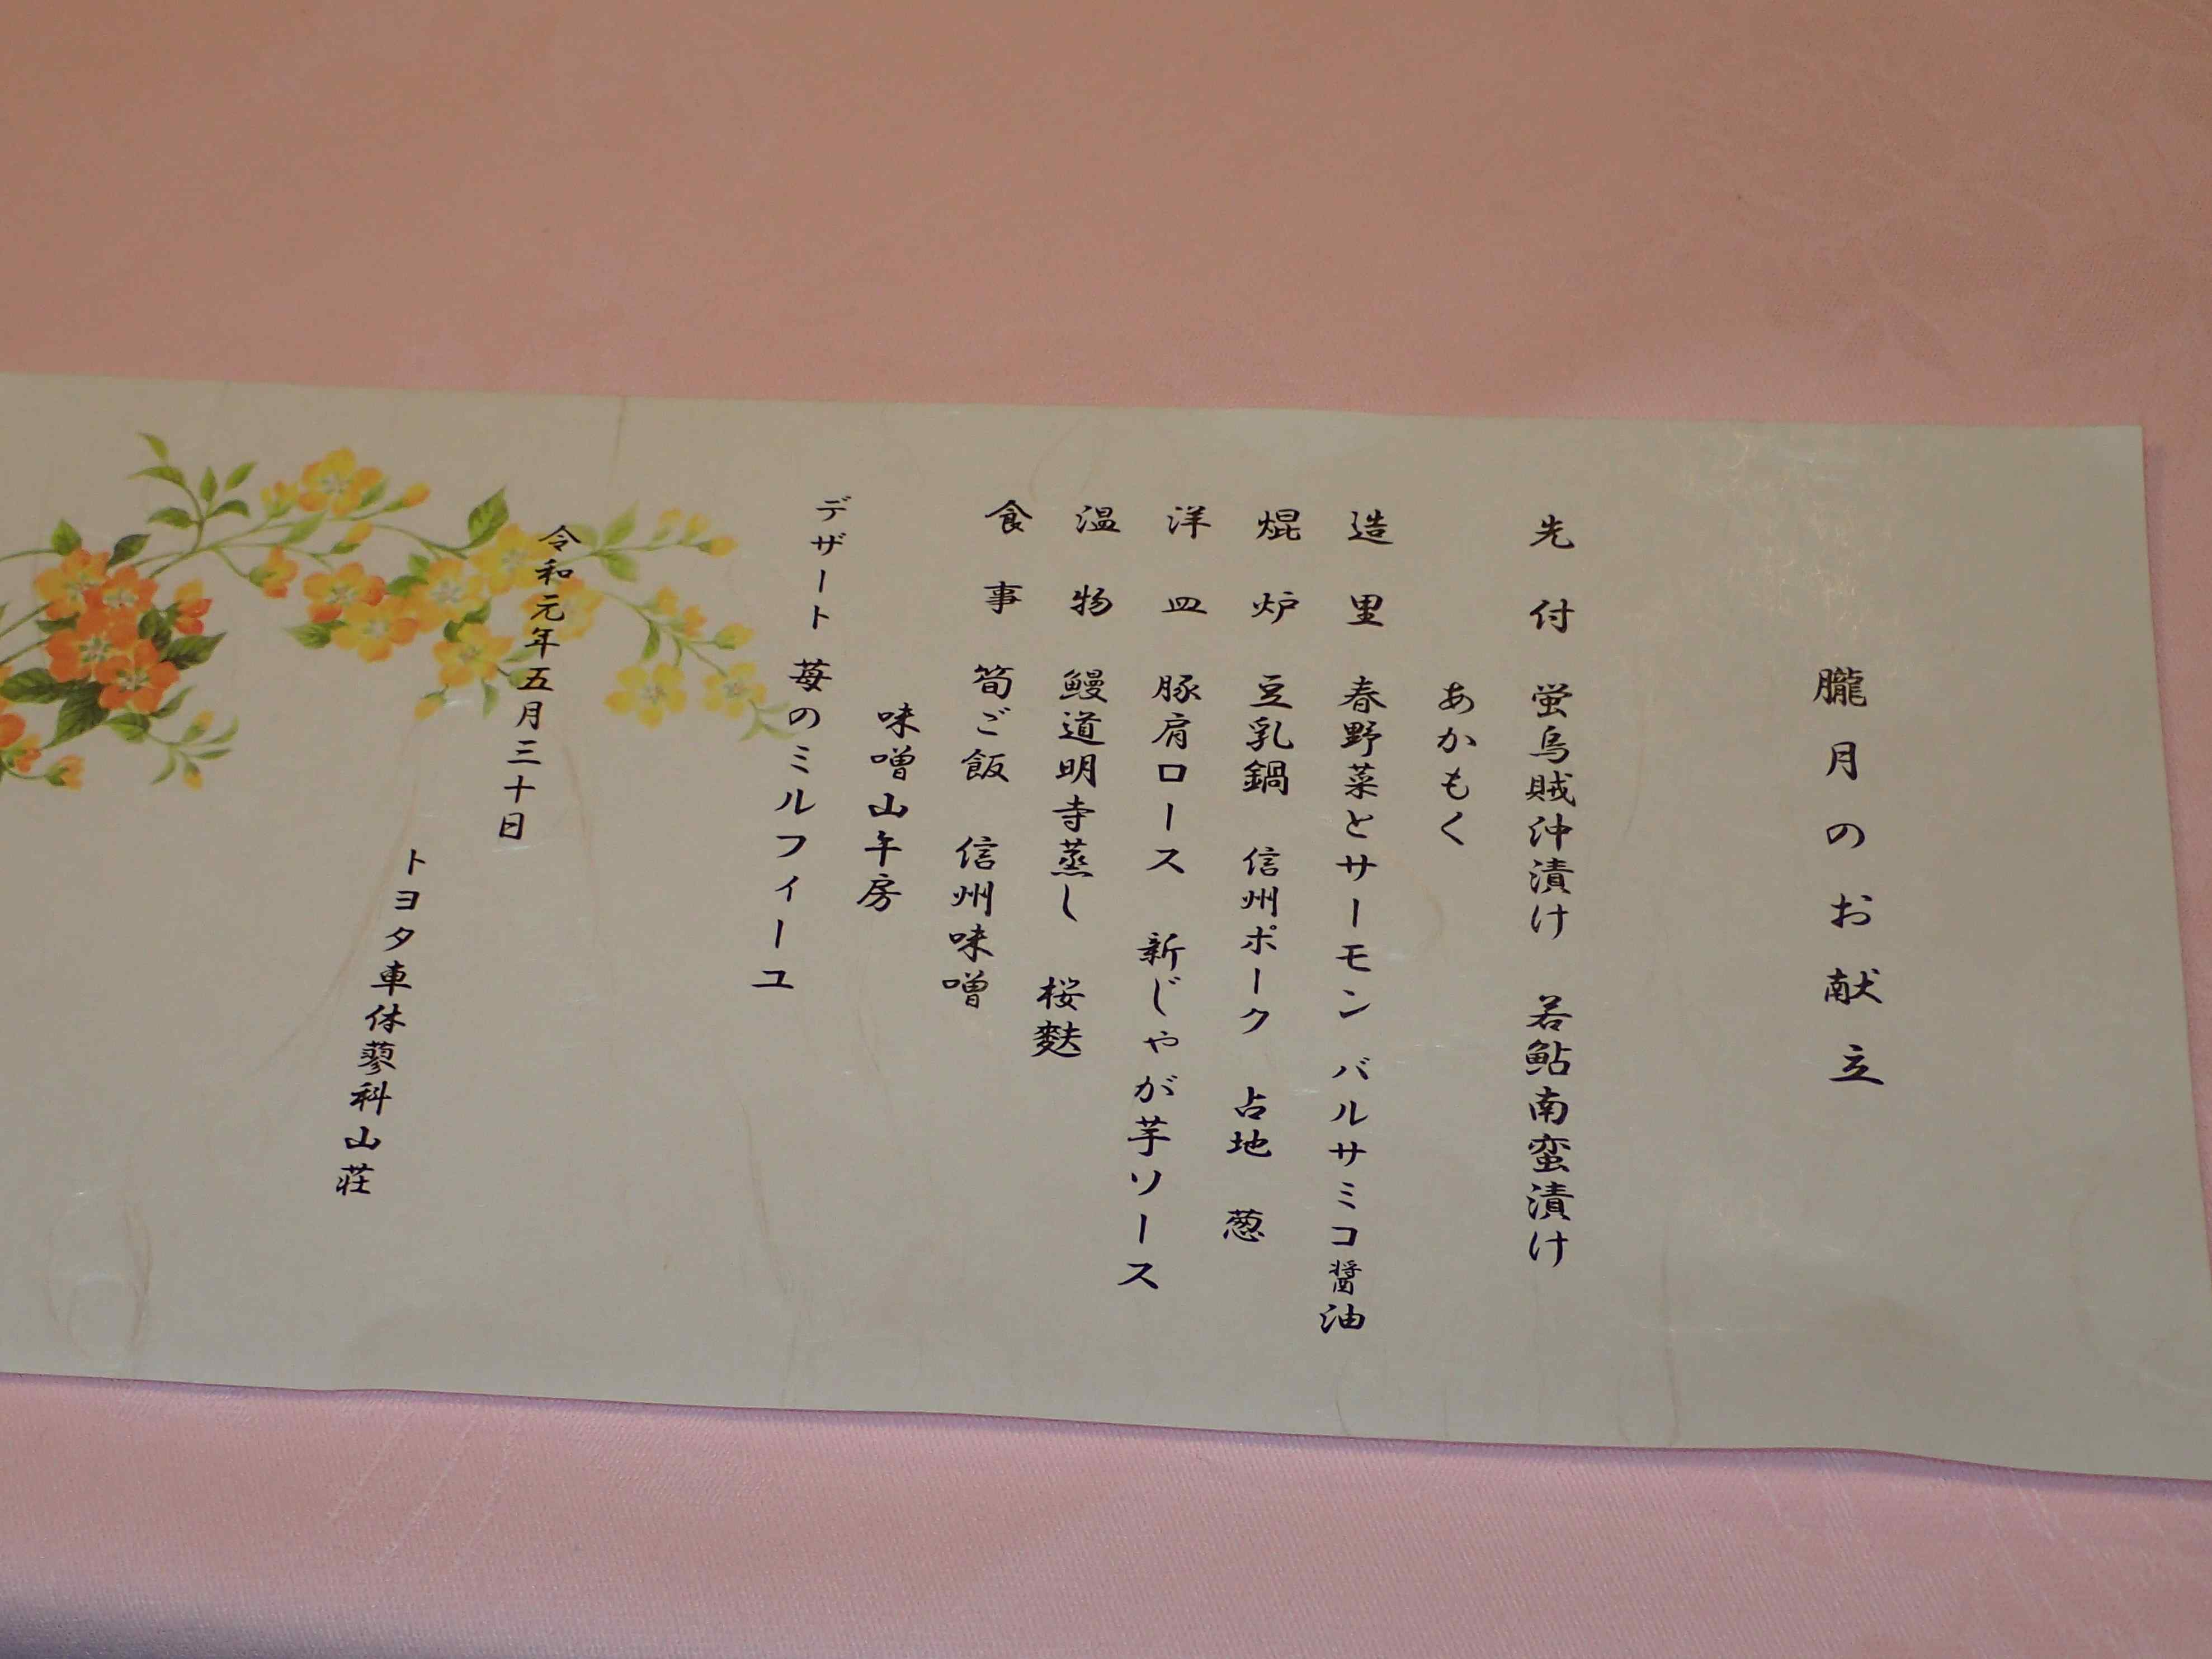 朧月のお献立
先付 蛍烏賊沖漬け 若鮎南蛮漬け
あかもく
造里 春野菜とサーモン バルサミコ醤油
焜炉 豆乳鍋 信州ポーク 占地 葱
洋皿 豚肩ロース 新じゃが芋ソース
温物 鰻道明寺蒸し 桜麩
食事 筍ご飯 信州味噌
味噌山午房
デザート 苺のミルフィーユ
令和元年五月三十日
トヨタ車体蓼科山荘